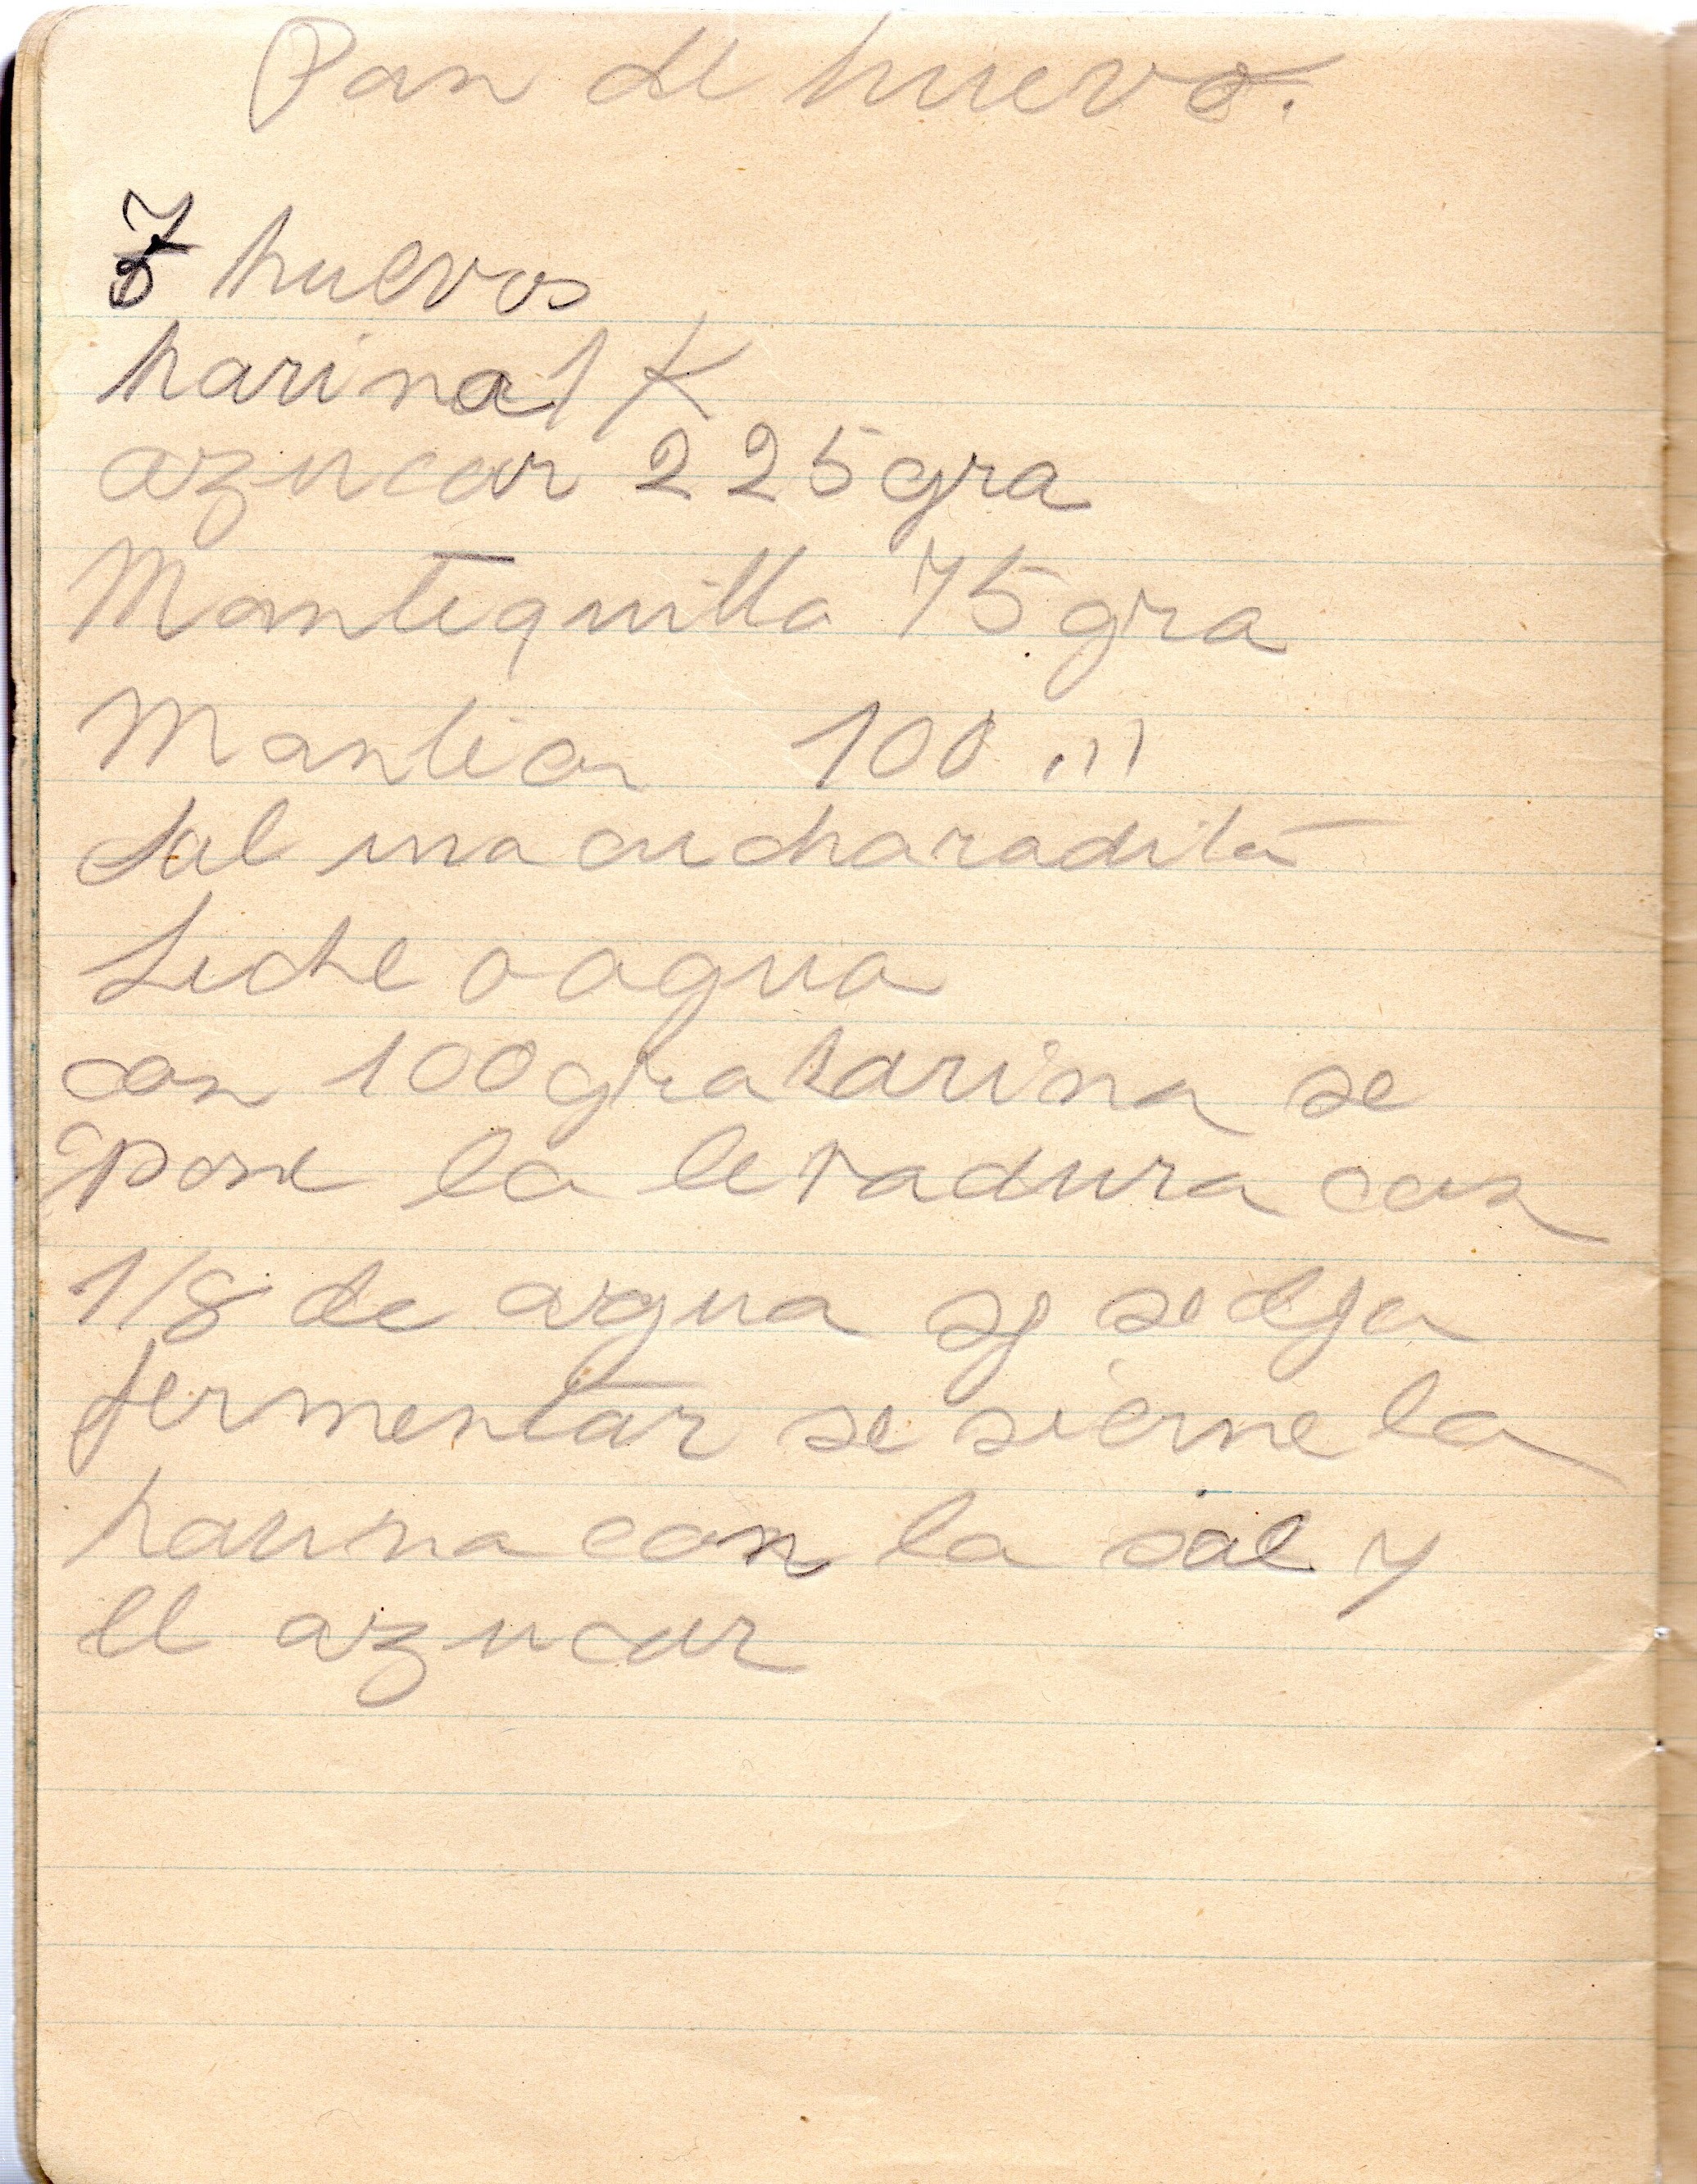 Pan de huevo.
7 huevos
harina 1 K
azucar 225 gra
Mantequilla 75 gra
Manteca 100 "'
Sal una cucharadita
Leche o agua
con 100 gra harina se
pone la levadura con
1/8 de agua y se deja
fermentar se sierne la
harina con la sal y
el azucar